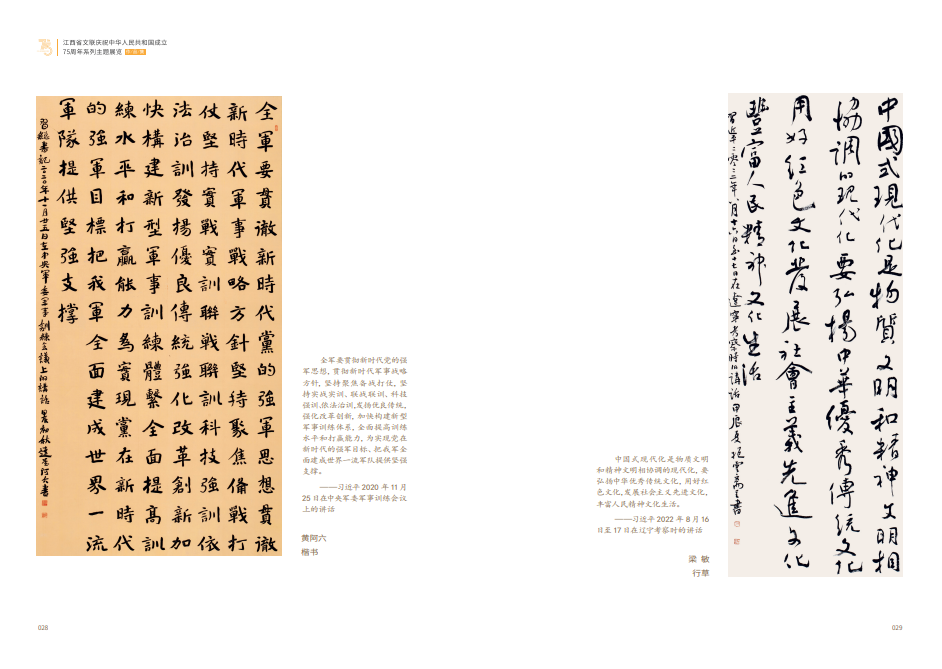 江西省文联庆祝中华人民共和国成立
75周年系列主题展览
全軍要貫徹新時代黨的強軍思想貫徹
新時代軍事戰略方針堅持聚焦備戰打
仗堅持實戰實訓聯戰聯訓科技強訓依
法治訓發揚優良傳統強化改革創新加
快構建新型軍事訓練體繫全面提高訓
練水平和打贏能力為實現黨在新時代
的強軍目標把我軍全面建成世界一流
軍隊提供堅強支撐
習總書記二〇二〇年十一月廿五日在中央軍委軍事訓練會議上的講話
全军要贯彻新时代党的强
军思想，贯彻新时代军事战略
方针，坚持聚焦备战打仗，坚
持实战实训、联战联训、科技
强训、依法治训，发扬优良传统，
强化改革创新，加快构建新型
军事训练体系，全面提高训练
水平和打赢能力，为实现党在
新时代的强军目标、把我军全
面建成世界一流军队提供坚强
支撑。
——习近平 2020 年 11 月
25 日在中央军委军事训练会议
上的讲话
黄阿六
楷书
中國式現代化是物質文明和精神文明相
協調的現代化要弘揚中華優秀傳統文化
用好紅色文化發展社會主義先進文化
豐富人民精神文化生活
習近平二零二二年八月十六日至十七日在遼寧考察時的講話 甲辰夏
中国式现代化是物质文明
和精神文明相协调的现代化，要
弘扬中华优秀传统文化，用好红
色文化，发展社会主义先进文化，
丰富人民精神文化生活。
——习近平 2022 年 8 月 16
日至 17 日在辽宁考察时的讲话
梁 敏
行草
028
029